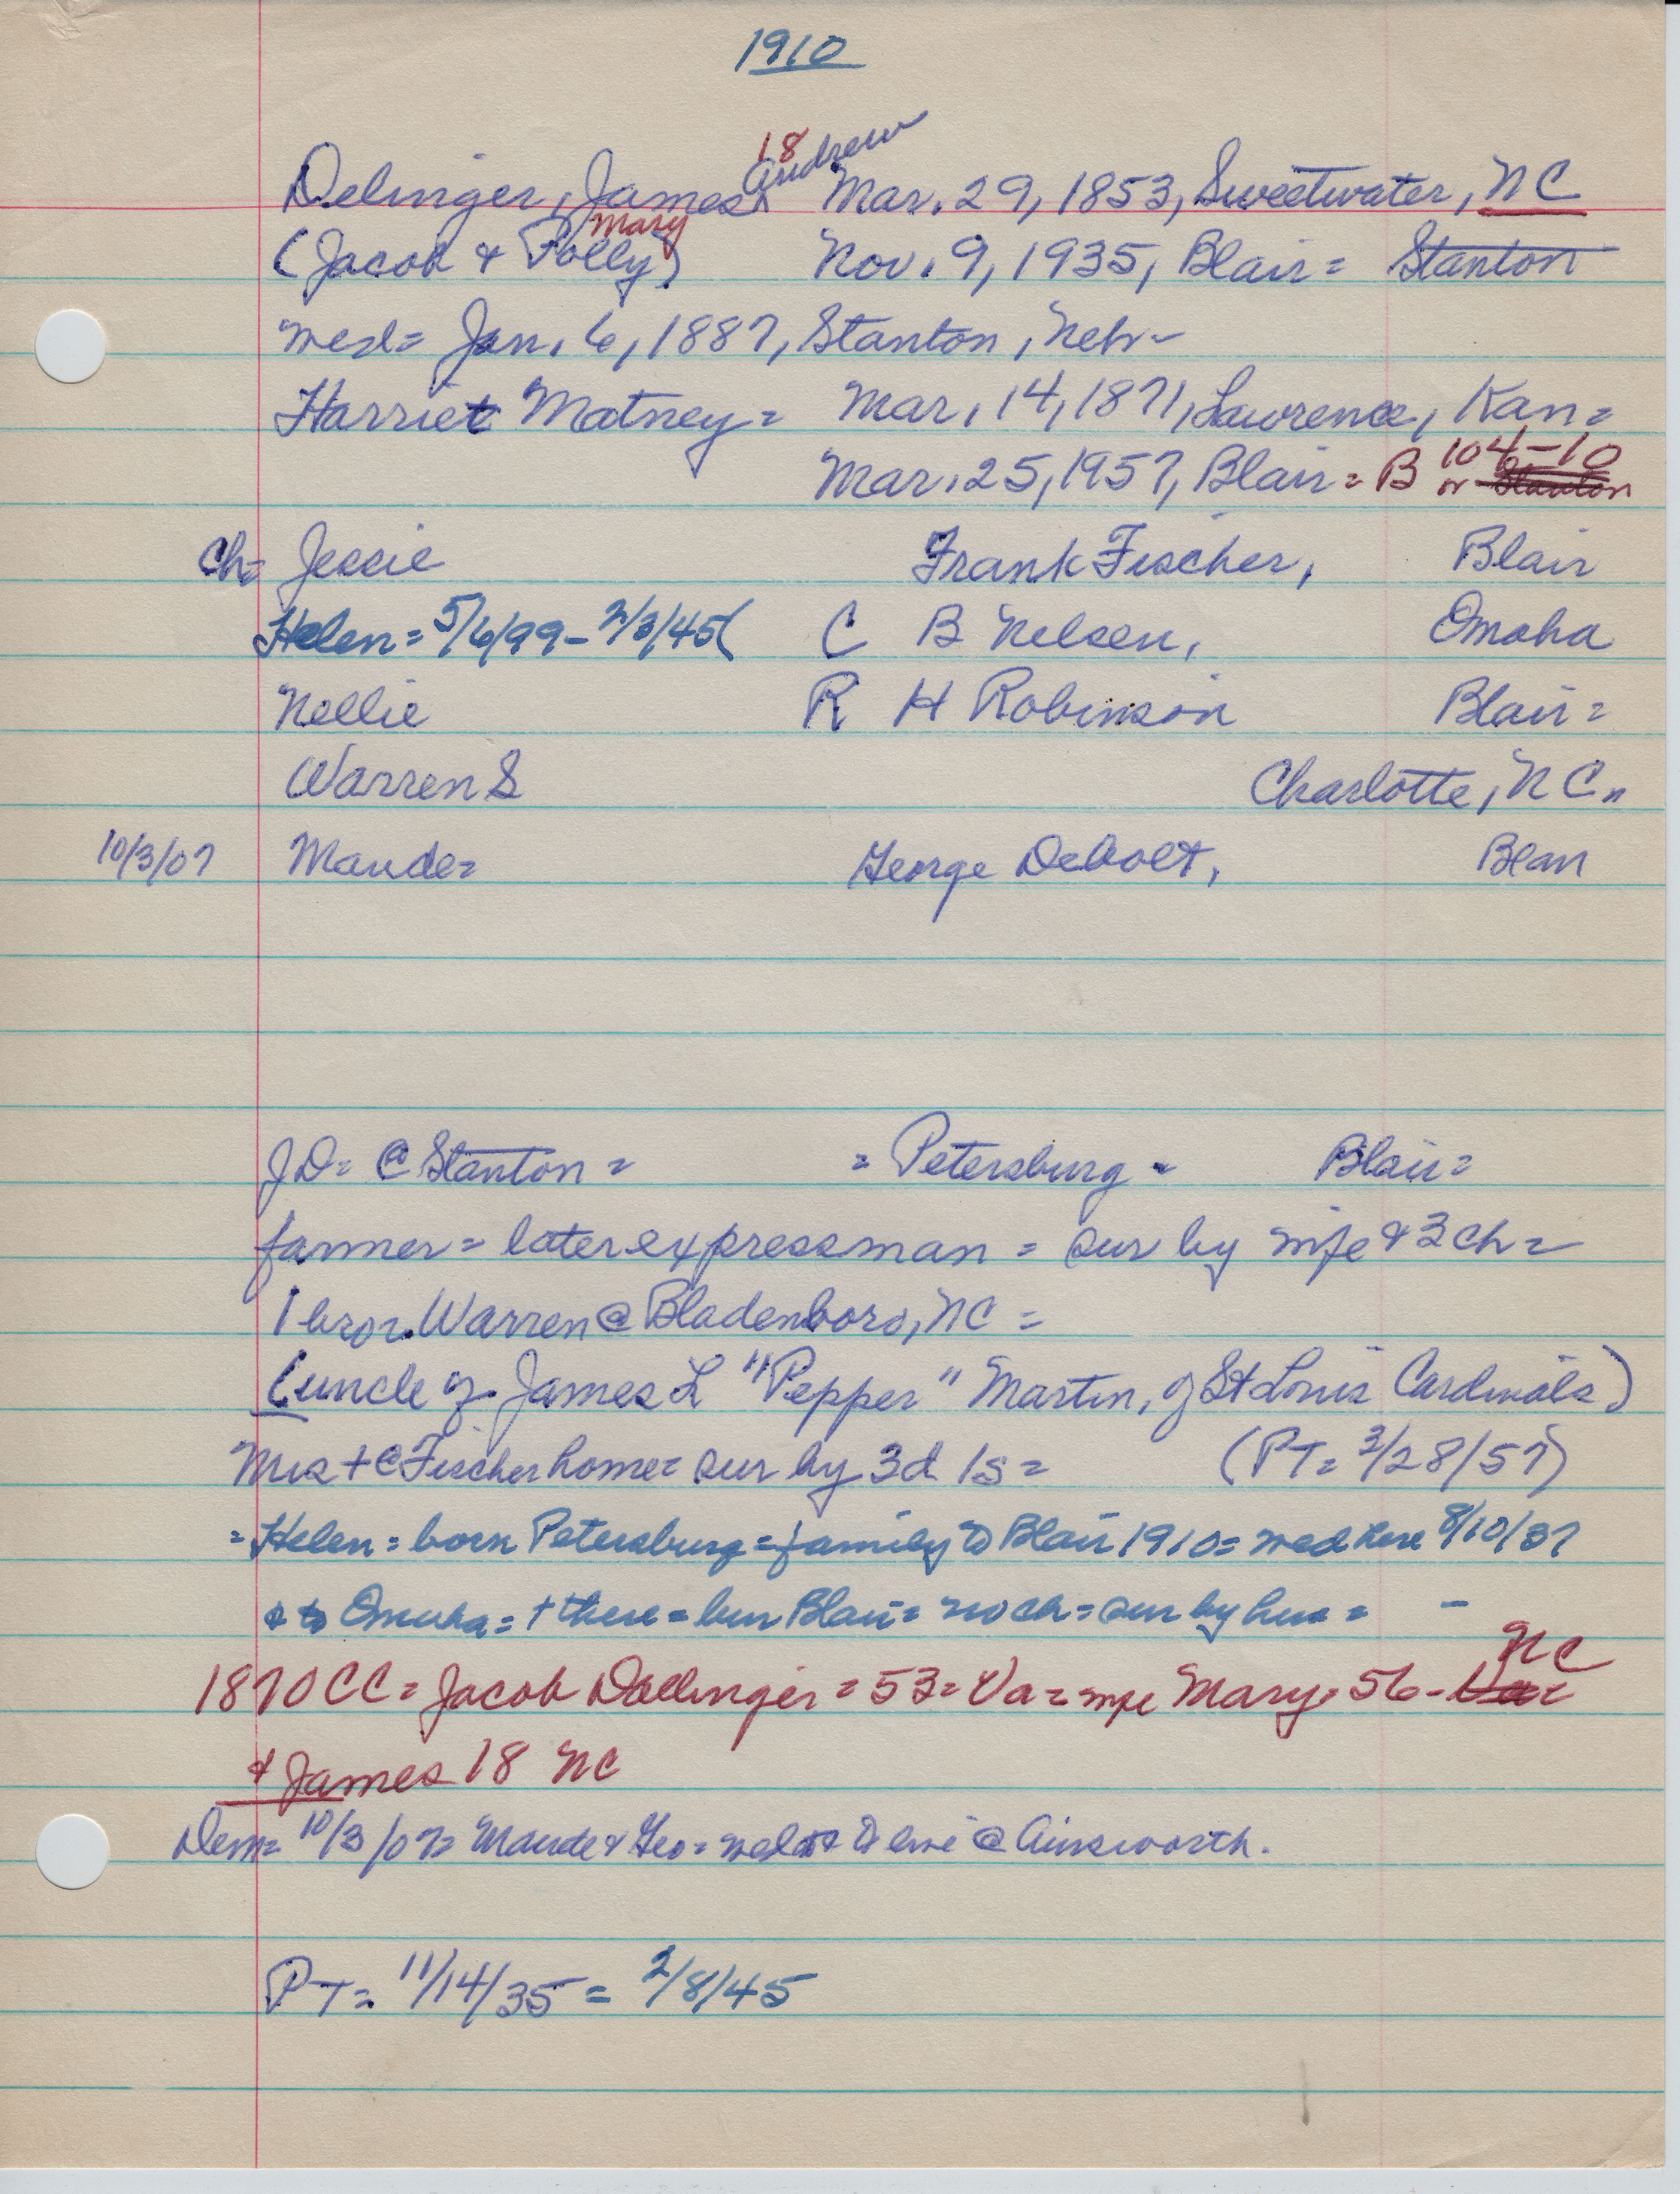 1910
18
Andrew
Delinger, James Mar. 29, 1853, Sweetwater, NC
Mary
(Jacob & Polly) Nov. 9, 1935, Blair = Stanton
wed = Jan. 6, 1887, Stanton, Nebr -
Harriet Matney = Mar. 14, 1871, Lawrence, Kan =
104-10
Mar. 25, 1957, Blair = B or Stanton
Ch = Jessie Frank Fischer, Blair
Helen = 5/6/99 - 2/3/45 ( C B Nelsen, Omaha
Nellie R H Robinson Blair =
Warren S Charlotte, NC
10/3/07 Maude = George Debolt, Blair
JD = @ Stanton = = Petersburg - Blair =
farmer = later expressman = sur by wife & 3 ch =
1 bro. Warren @ Bladenboro, NC =
(uncle of James L "Pepper" Martin, of St Louis Cardinals)
Mrs + @ Fischer home = sur by 3d 1s = (PT = 3/28/57)
= Helen = born Petersburg = family to Blair 1910 = wed here 8/10/37
& to Omaha = + there = bur Blair = no ch = sur by hus = -
NC
1870 CC = Jacob Dallinger = 53 = Va = wife Mary = 56 - Va =
& James 18 NC
Dem = 10/3/07 = Maude & Geo = wed to live @ Ainsworth.
PT = 11/14/35 = 2/8/45